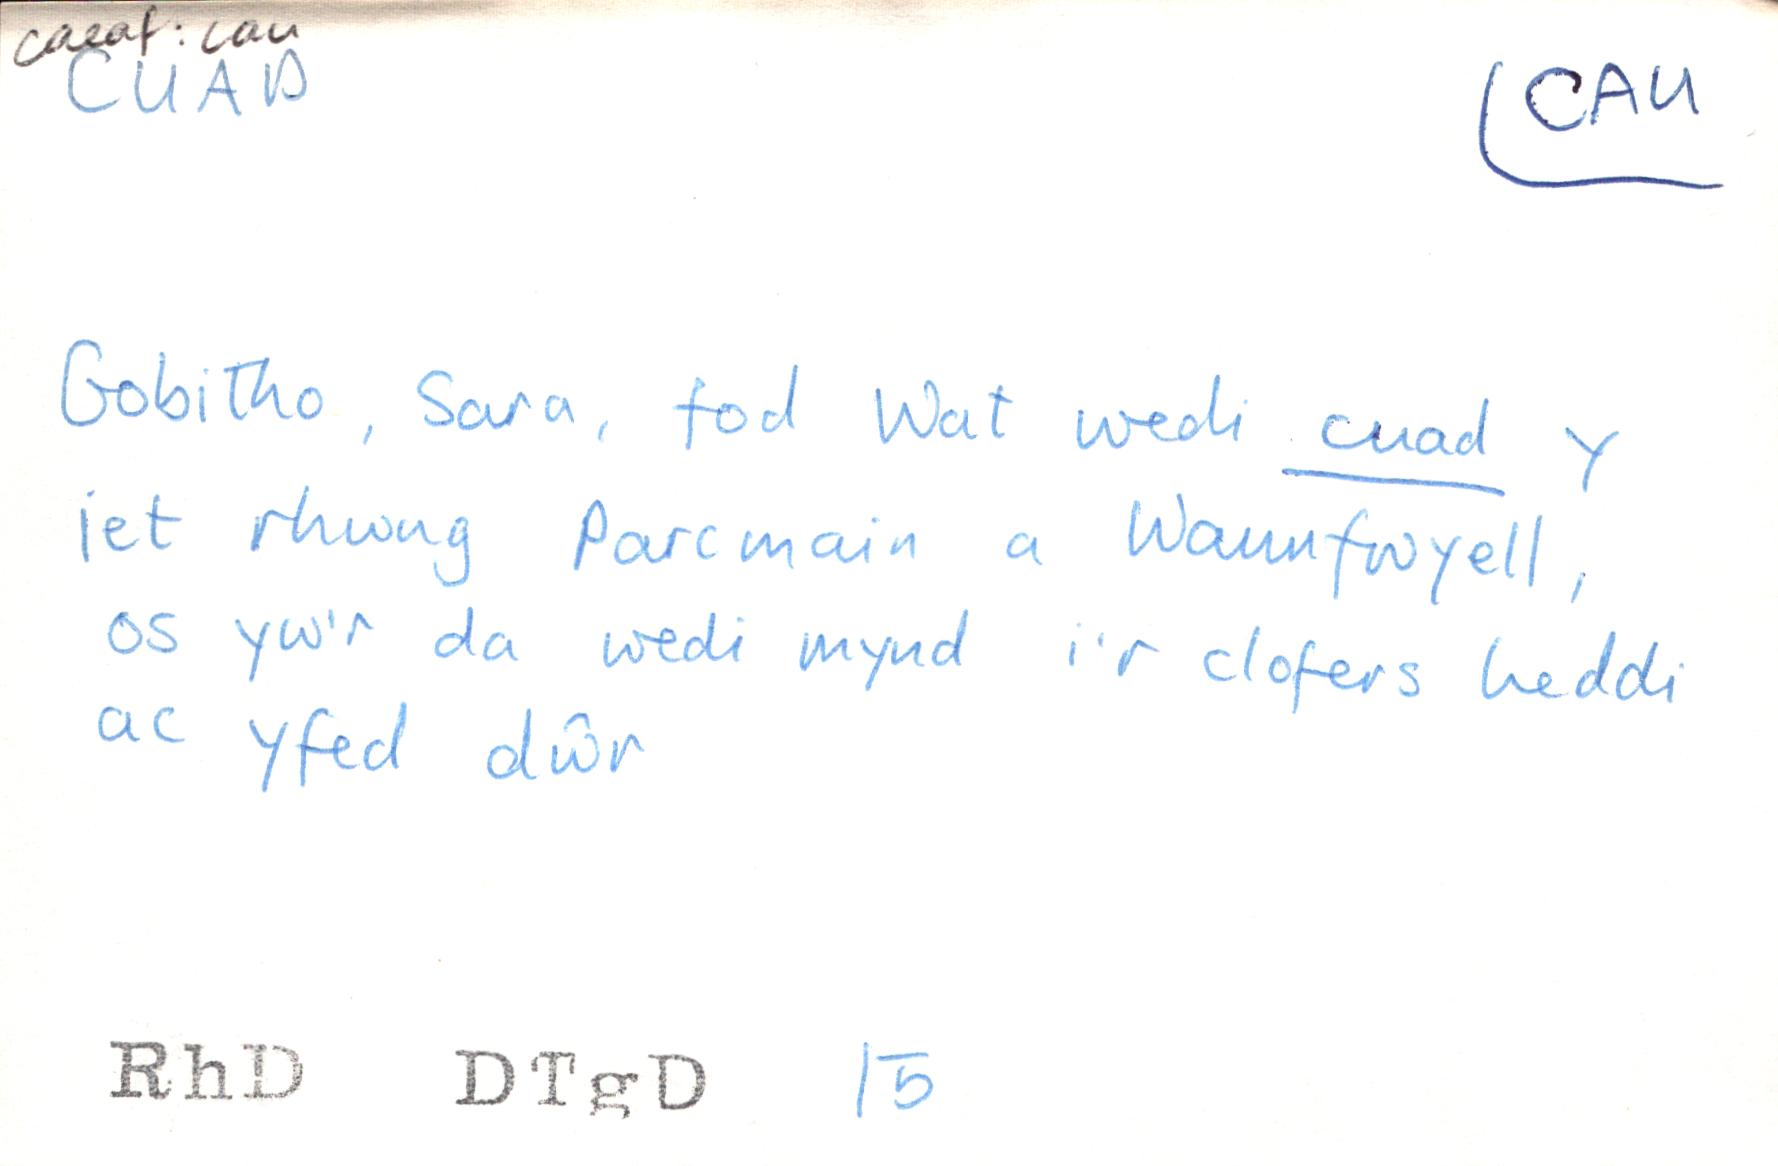 caeaf: cau
CUAD
CAU
Gobitho, Sara, fod Wat wedi cuad y
iet rhwng Parcmain a Waunfwyell,
os yw'r da wedi mynd i'r clofers heddi
ac yfed dŵr
RhD DTgD 15